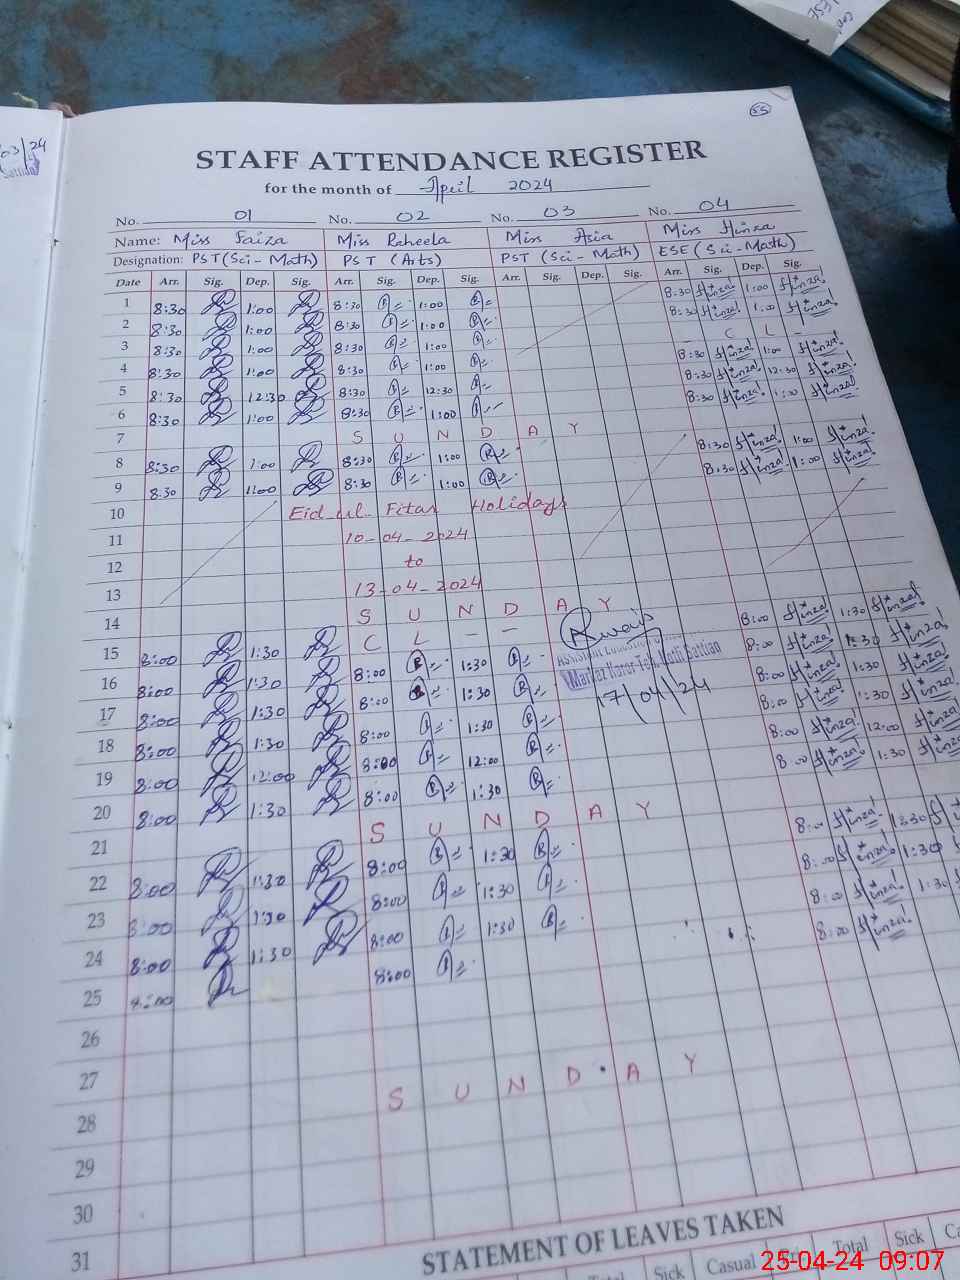 55
03/24
STAFF ATTENDANCE REGISTER
for the month of April 2024
No. 01 No. 02 No. 03 No. 04
Name: Miss Faiza Miss Raheela Miss Asia Miss Hinza
Designation: PST (Sci-Math) PST (Arts) PST (Sci-Math) ESE (Sci-Math)
Date Arr. Sig. Dep. Sig. Arr. Sig. Dep. Sig. Arr. Sig. Dep. Sig. Arr. Sig. Dep. Sig.
1 8:30 1:00 8:30 1:00 8:30 Hinza 1:00 Hinza
2 8:30 1:00 8:30 1:00 8:30 Hinza 1:00 Hinza
3 8:30 1:00 8:30 1:00 - C L -
4 8:30 1:00 8:30 1:00 8:30 Hinza 1:00 Hinza
5 8:30 12:30 8:30 12:30 8:30 Hinza 12:30 Hinza
6 8:30 1:00 8:30 1:00 8:30 Hinza 1:00 Hinza
7 S U N D A Y
8 8:30 1:00 8:30 1:00 8:30 Hinza 1:00 Hinza
9 8:30 1:00 8:30 1:00 8:30 Hinza 1:00 Hinza
10 Eid ul Fitar Holidays
11 10-04-2024
12 to
13 13-04-2024
14 S U N D A Y
15 8:00 1:30 C L - - 8:00 Hinza 1:30 Hinza
16 8:00 1:30 8:00 1:30 8:00 Hinza 1:30 Hinza
17 8:00 1:30 8:00 1:30 8:00 Hinza 1:30 Hinza
Markaz Naror Teh. Kotli Sattian
17/04/24
18 8:00 1:30 8:00 1:30 8:00 Hinza 1:30 Hinza
19 8:00 12:00 8:00 12:00 8:00 Hinza 12:00 Hinza
20 8:00 1:30 8:00 1:30 8:00 Hinza 1:30 Hinza
21 S U N D A Y
22 8:00 1:30 8:00 1:30 8:00 Hinza 1:30
23 8:00 1:30 8:00 1:30 8:00 Hinza 1:30
24 8:00 1:30 8:00 1:30 8:00 Hinza 1:30
25 8:00 8:00 8:00 Hinza
26
27
28 S U N D A Y
29
30
31
STATEMENT OF LEAVES TAKEN
Total Sick Casual Total Sick
25-04-24 09:07